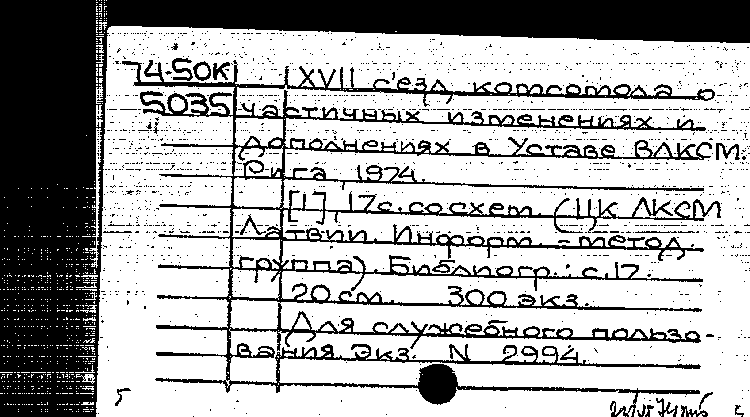 74-50К XVII съезд комсомола о
5035 частичных изменениях и
дополнениях в Уставе ВЛКСМ.
Рига, 1974.
[1], 17с. со схем. (ЦК ЛКСМ
Латвии. Информ.-метод.
группа). Библиогр.: с.17.
20 см. 300 экз.
Для служебного пользо-
вания. Экз. N 2994.